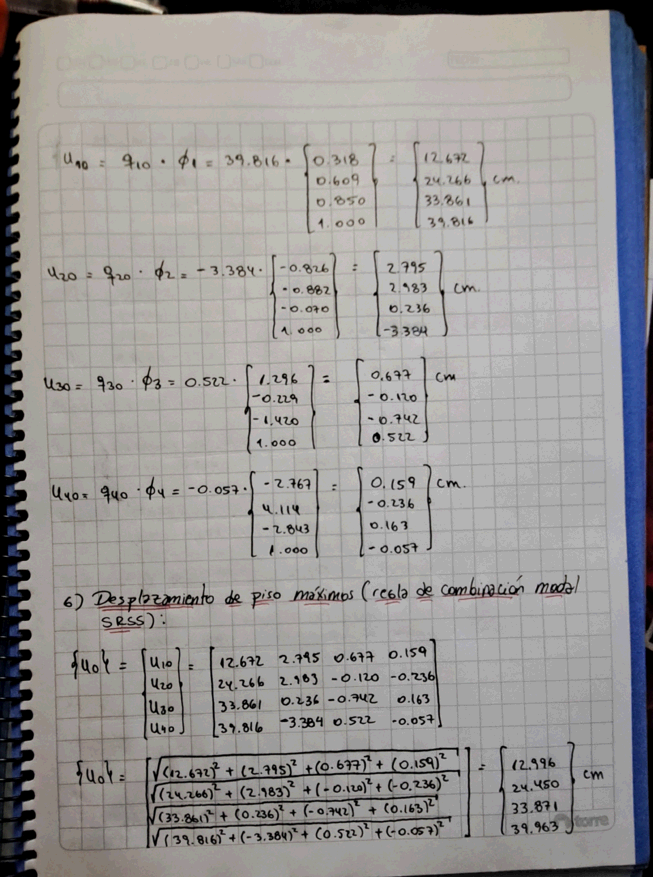 u10 = q10 · ϕ1 = 39.816 · [0.318 0.609 0.850 1.000] = [12.672 24.266 33.861 39.816] cm.
u20 = q20 · ϕ2 = -3.384 · [-0.826 -0.882 -0.070 1.000] = [2.795 2.983 0.236 -3.384] cm.
u30 = q30 · ϕ3 = 0.522 · [1.296 -0.229 -1.420 1.000] = [0.677 -0.120 -0.742 0.522] cm
u40 = q40 · ϕ4 = -0.057 · [-2.767 4.114 -2.843 1.000] = [0.159 -0.236 0.163 -0.057] cm.
6) Desplazamiento de piso máximos (regla de combinación modal
SRSS):
{u0} = [u10 u20 u30 u40] =
[12.672 2.795 0.677 0.159
24.266 2.983 -0.120 -0.236
33.861 0.236 -0.742 0.163
39.816 -3.384 0.522 -0.057]
{u0} =
[√(12.672)² + (2.795)² + (0.677)² + (0.159)²
√(24.266)² + (2.983)² + (-0.120)² + (-0.236)²
√(33.861)² + (0.236)² + (-0.742)² + (0.163)²
√(39.816)² + (-3.384)² + (0.522)² + (-0.057)²]
= [12.996 24.450 33.871 39.963] cm
torre